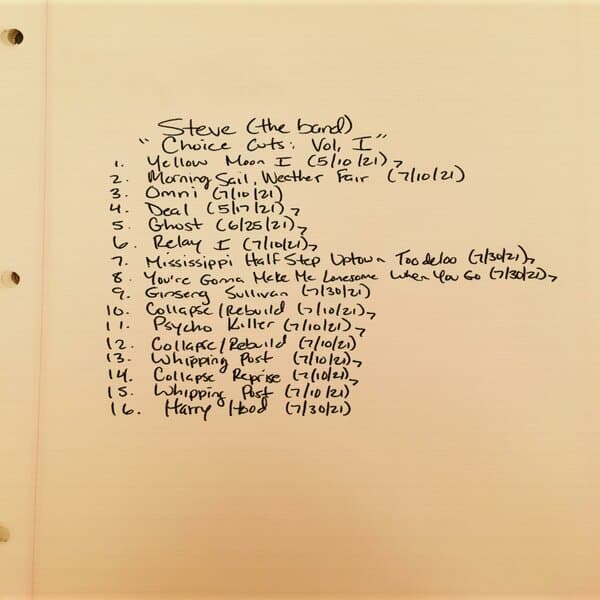 Steve (the band)
"Choice Cuts: Vol. I"
1. Yellow Moon I (5/10/21) >
2. Morning Sail, Weather Fair (7/10/21)
3. Omni (7/10/21)
4. Deal (5/17/21) >
5. Ghost (6/25/21) >
6. Relay I (7/10/21) >
7. Mississippi Half Step Uptown Toodeloo (7/30/21) >
8. You're Gonna Make Me Lonesome When You Go (7/30/21) >
9. Ginseng Sullivan (7/30/21)
10. Collapse/Rebuild (7/10/21) >
11. Psycho Killer (7/10/21) >
12. Collapse/Rebuild (7/10/21)
13. Whipping Post (7/10/21) >
14. Collapse Reprise (7/10/21) >
15. Whipping Post (7/10/21)
16. Harry Hood (7/30/21)